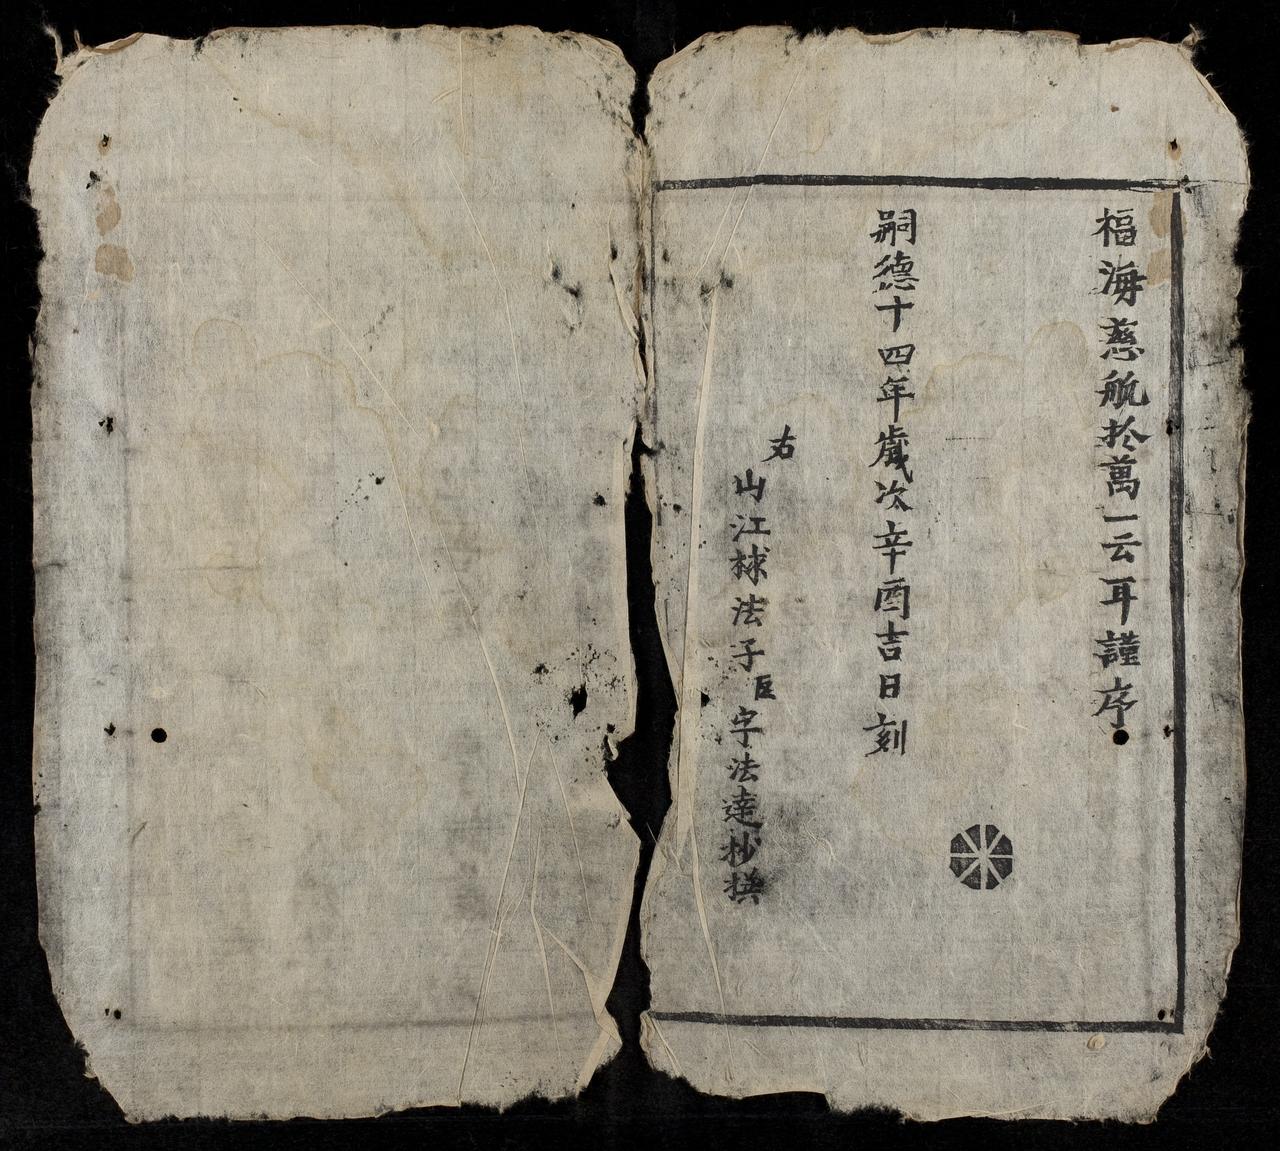 福海慈航於萬一云耳謹序
嗣德十四年歲次辛酉吉日刻
右
山江梂法子臣字法達抄撰